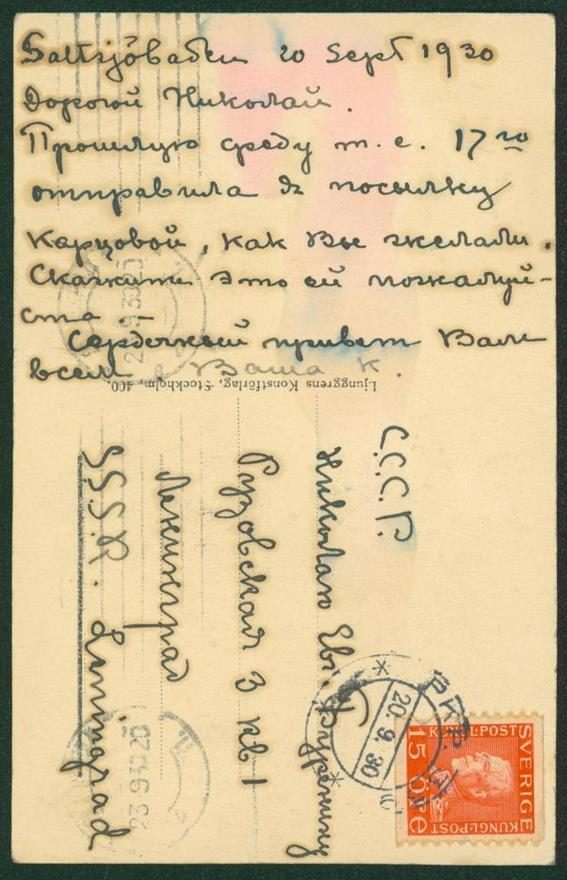 Saltsjöbaden 20 Sept 1930
Дорогой Николай.
Прошлую среду т. е. 17го
отправила посылку
Карцовой, как Вы желали.
Скажите это ей пожалуй-
ста —
Сердечный привет Вам
всем. Ваша К.
Ljunggrens Konstförlag, Stockholm, 400.
С.С.С.Р.
Николаю Евг.
Рузовская 3 кв 1
Ленинград
S.S.S.R. Leningrad
20.9.30
SVERIGE
KUNGL-POST
KUNGL-POST
15 ÖRE